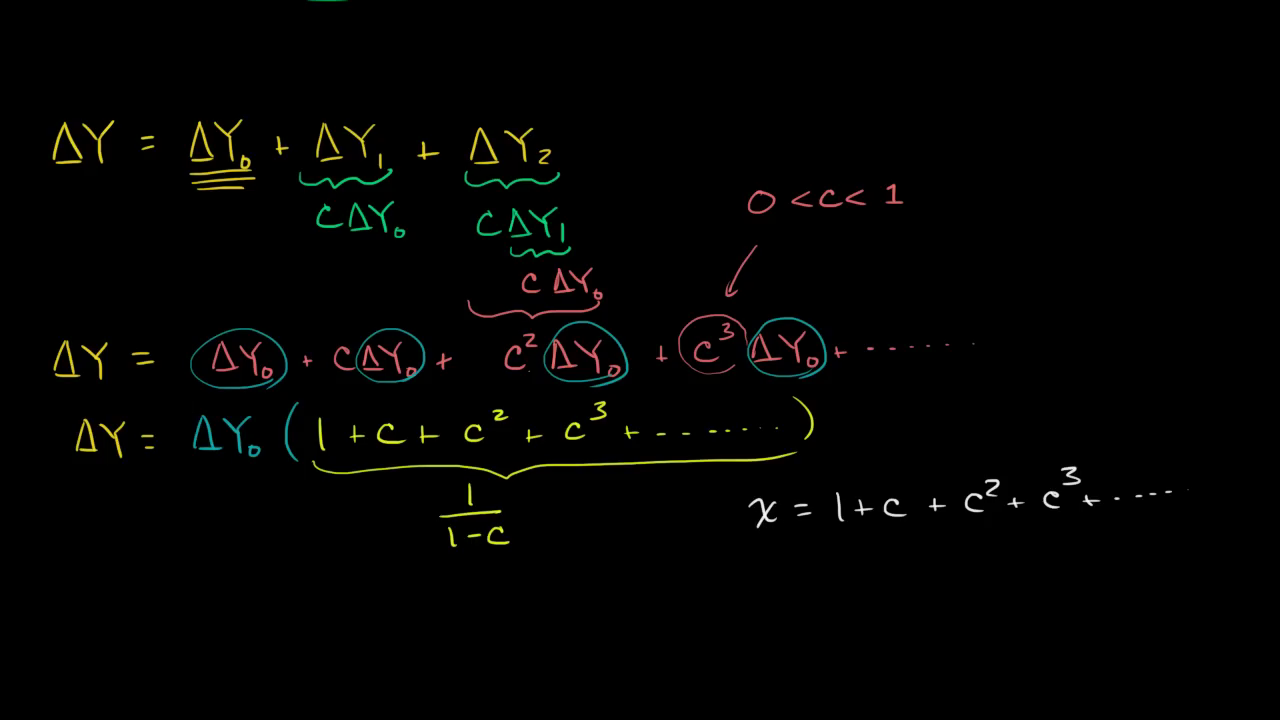 ΔY = ΔY₀ + ΔY₁ + ΔY₂
0 < c < 1
cΔY₀
cΔY₁
cΔY₀
ΔY = ΔY₀ + cΔY₀ + c²ΔY₀ + c³ΔY₀ + ........
ΔY = ΔY₀ (1 + c + c² + c³ + ........)
1
1-c
x = 1 + c + c² + c³ + ......